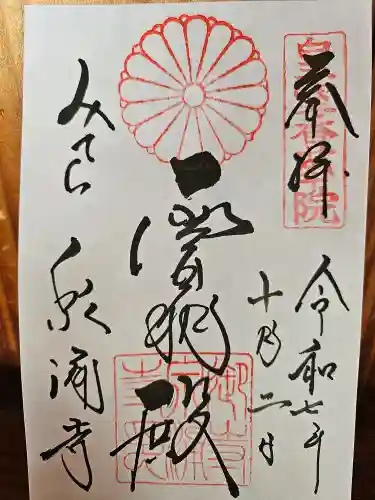 皇室香華院
奉拝
令和七年
十月二日
霊明殿
みてら 泉涌寺